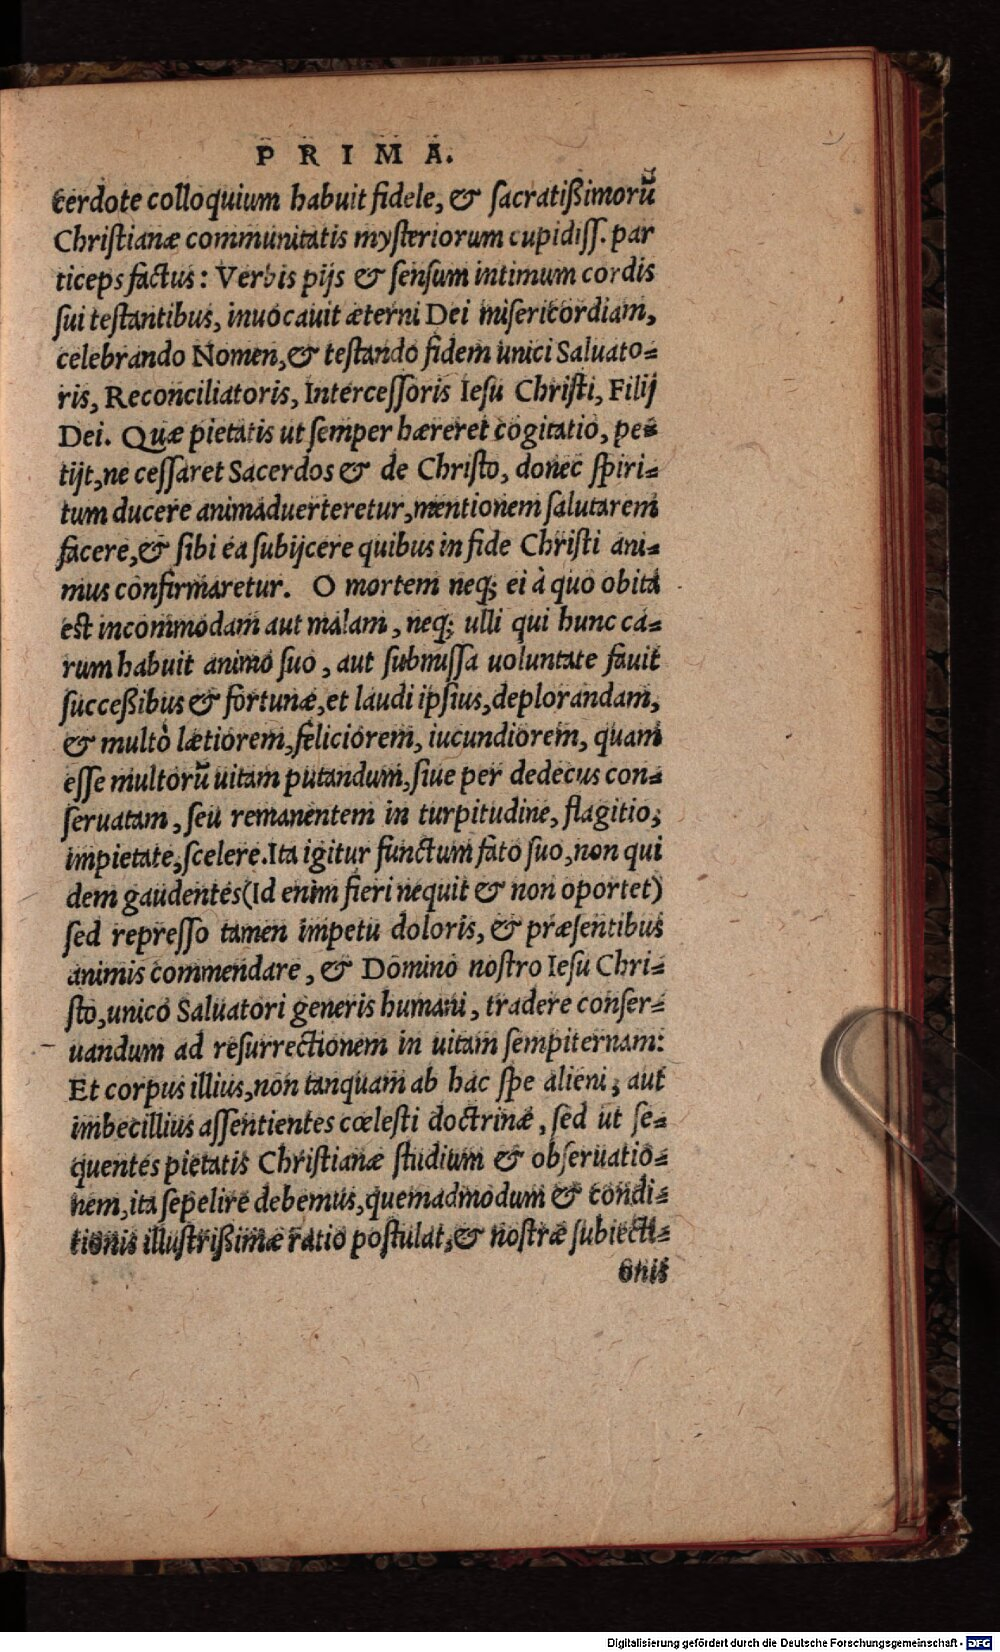 PRIMA.
cerdote colloquium habuit fidele, & sacratißimorū
Christianæ communitatis mysteriorum cupidiss. par
ticeps factus: Verbis pijs & sensum intimum cordis
sui testantibus, inuocauit æterni Dei misericordiam,
celebrando Nomen, & testando fidem unici Saluato-
ris, Reconciliatoris, Intercessoris Iesu Christi, Filij
Dei. Quæ pietatis ut semper hæreret cogitatio, pe-
tijt, ne cessaret Sacerdos & de Christo, donec spiri-
tum ducere animaduerteretur, mentionem salutarem
facere, & sibi ea subijcere quibus in fide Christi ani-
mus confirmaretur. O mortem neq; ei à quo obita
est incommodam aut malam, neq; ulli qui hunc ca-
rum habuit animo suo, aut submissa uoluntate fauit
succeßibus & fortunæ, et laudi ipsius, deplorandam,
& multò lætiorem, feliciorem, iucundiorem, quam
esse multorū uitam putandum, siue per dedecus con-
seruatam, seu remanentem in turpitudine, flagitio,
impietate, scelere. Ita igitur functum fato suo, non qui
dem gaudentes (Id enim fieri nequit & non oportet)
sed represso tamen impetu doloris, & præsentibus
animis commendare, & Domino nostro Iesu Chri-
sto, unico Saluatori generis humani, tradere conser-
uandum ad resurrectionem in uitam sempiternam:
Et corpus illius, non tanquam ab hac spe alieni, aut
imbecillius assentientes cœlesti doctrinæ, sed ut se-
quentes pietatis Christianæ studium & obseruatio-
nem, ita sepelire debemus, quemadmodum & condi-
tionis illustrißimæ ratio postulat, & nostræ subiecti-
onis
Digitalisierung gefördert durch die Deutsche Forschungsgemeinschaft - DFG